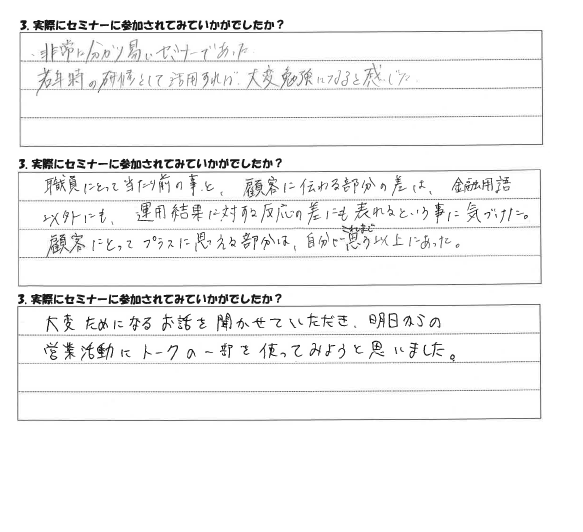 3. 実際にセミナーに参加されてみていかがでしたか？
・非常に分かり易いセミナーであった
若年時の研修として活用すれば、大変勉強になると感じた。
3. 実際にセミナーに参加されてみていかがでしたか？
職員にとって当たり前の事と、顧客に伝わる部分の差は、金融用語
以外にも、運用結果に対する反応の差にも表れるという事に気づけた。
顧客にとってプラスに思える部分は、自分で思う以上にあった。
3. 実際にセミナーに参加されてみていかがでしたか？
大変ためになるお話を聞かせていただき、明日からの
営業活動にトークの一部を使ってみようと思いました。